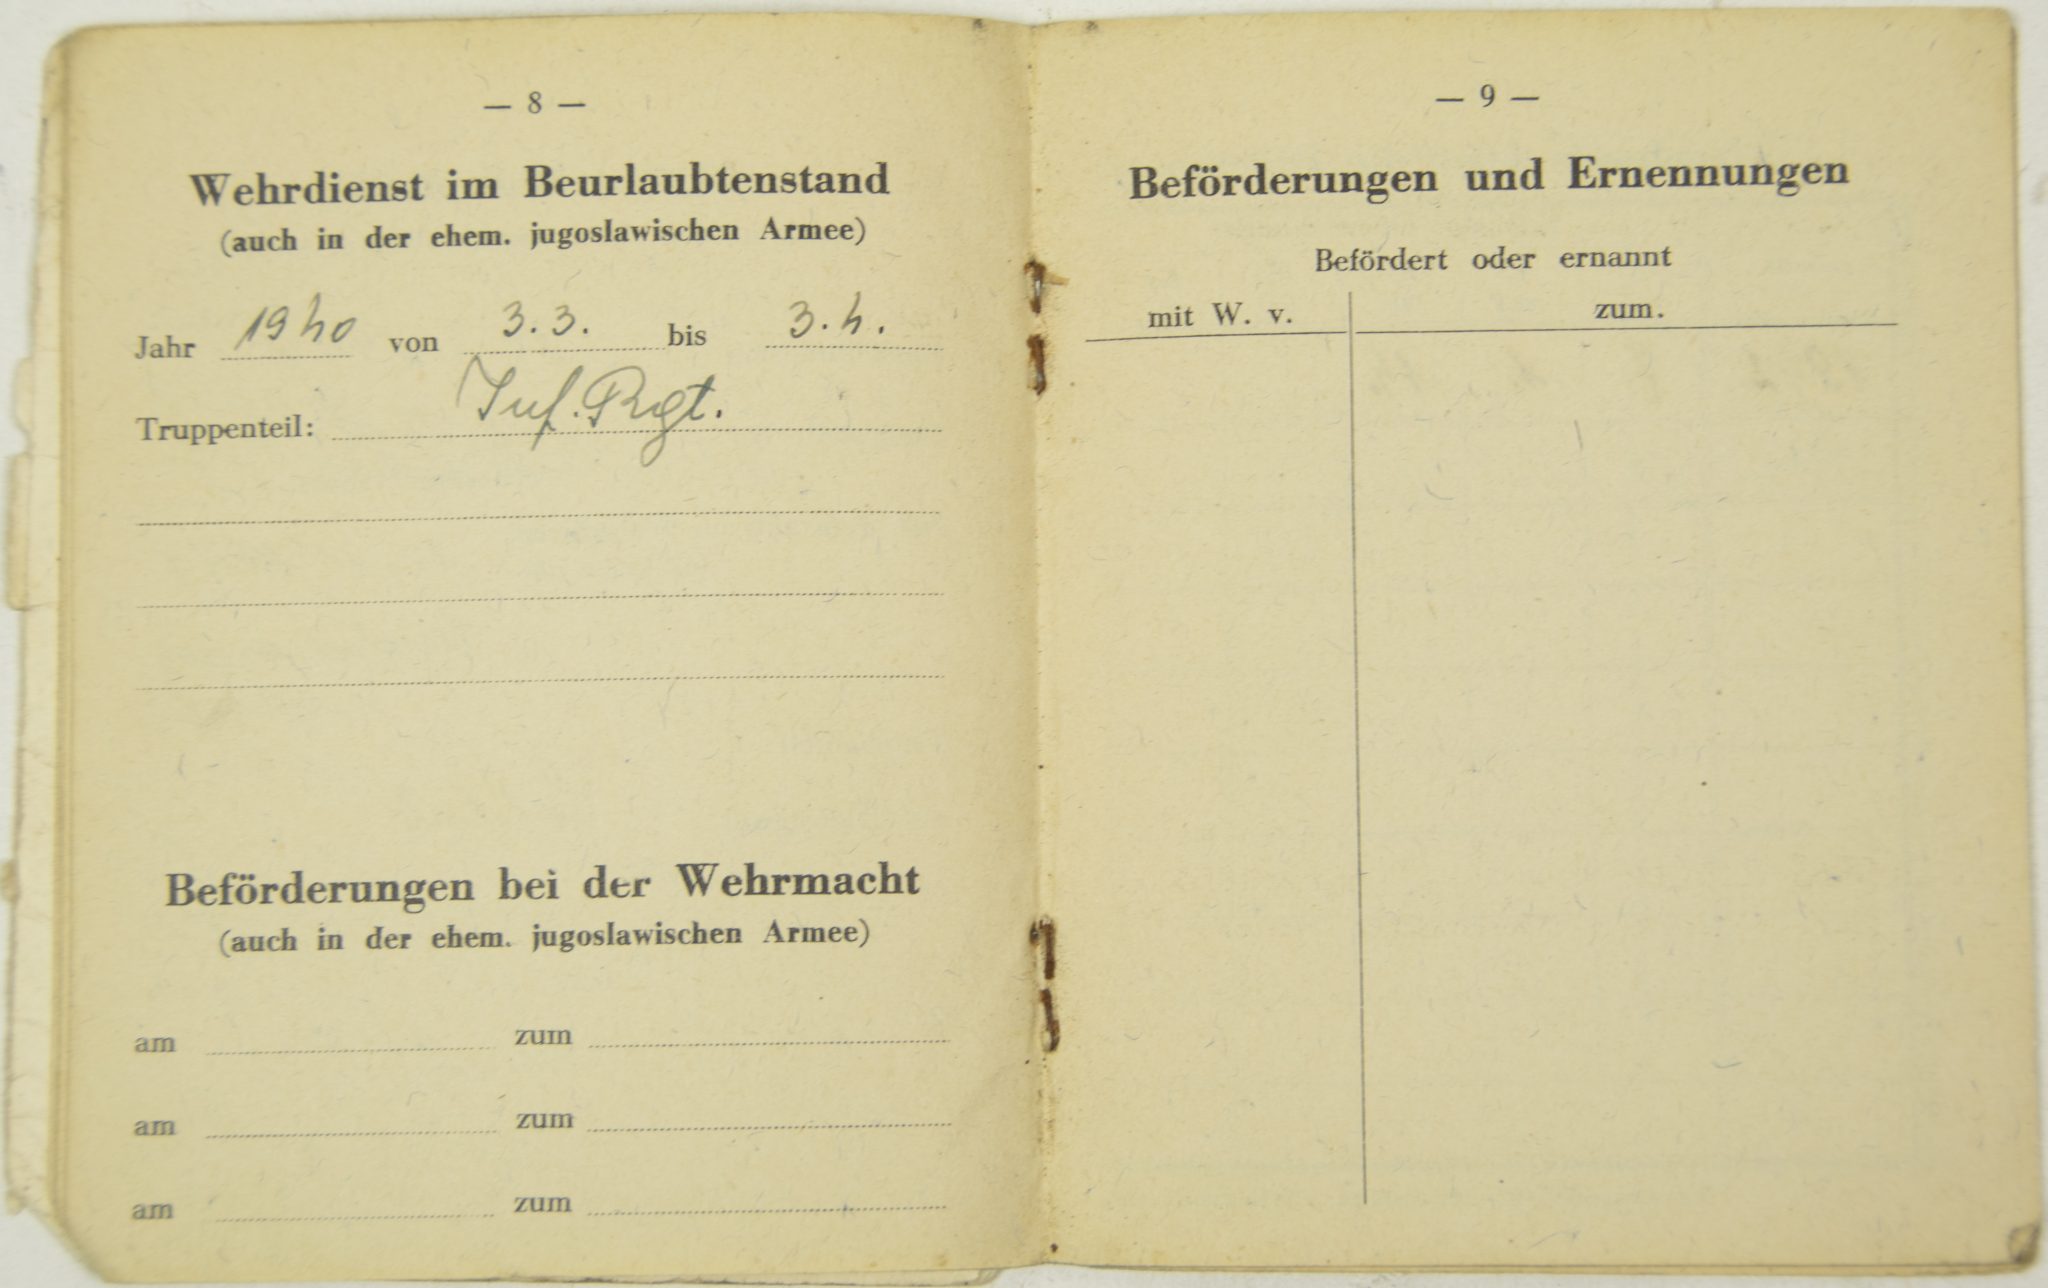 — 8 —
Wehrdienst im Beurlaubtenstand
(auch in der ehem. jugoslawischen Armee)
Jahr 1940 von 3.3. bis 3.4.
Truppenteil: Inf. Rgt.
Beförderungen bei der Wehrmacht
(auch in der ehem. jugoslawischen Armee)
am zum
am zum
am zum
— 9 —
Beförderungen und Ernennungen
Befördert oder ernannt
mit W. v. zum.